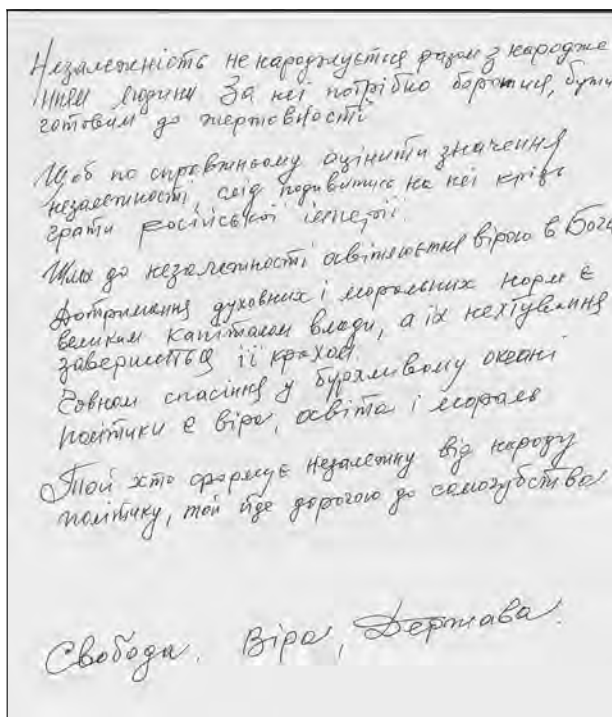 Незалежність не народжується разом з народже
нням людини За неї потрібно боротися, бути
готовим до жертовності
Щоб по справжньому оцінити значення
незалежності, слід подивитись на неї крізь
грати російської імперії.
Шлях до незалежності освітлюється вірою в Бога
Дотримання духовних і моральних норм є
великим капіталом влади, а їх нехтування
завершиться її крахом.
Човном спасіння у бурхливому океані
політики є віра, освіта і мораль
Той хто формує незалежну від народу
політику, той йде дорогою до самогубства
Свобода. Віра, Держава.